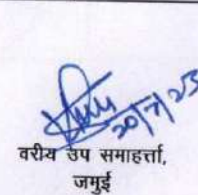 20/7/23
वरीय उप समाहर्त्ता,
जमुई